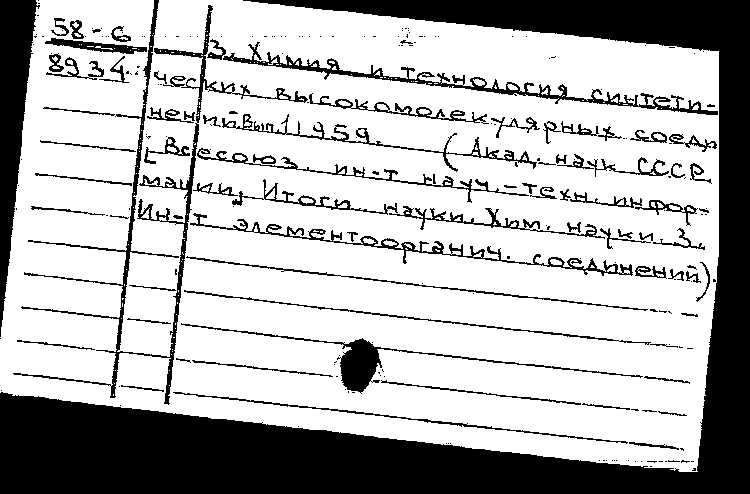 58-6
8934
3. Химия и технология синтети-
ческих высокомолекулярных соеди
нений Вып. 1, 1959. (Акад. наук СССР.
Всесоюз. ин-т науч.-техн. инфор-
мации, Итоги науки. Хим. науки. 3.
Ин-т элементоорганич. соединений).